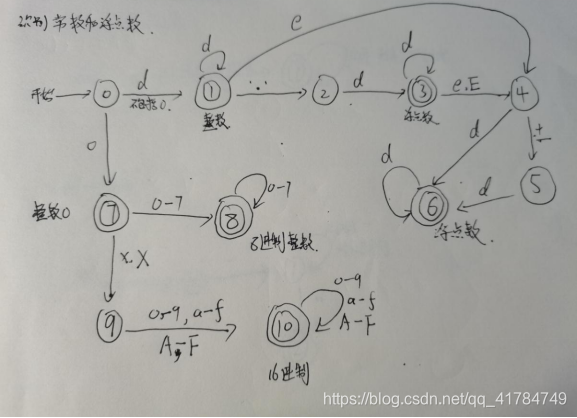 识别 常数和浮点数.
e
d
d
开始
0
d
不包括0.
1
整数
..
2
d
3
浮点数
e.E
4
0
d
d
±
5
d
6
浮点数
整数0
7
0-7
8
0-7
8进制整数.
x.X
9
0-9, a-f
A-F
10
0-9
a-f
A-F
16进制
https://blog.csdn.net/qq_41784749